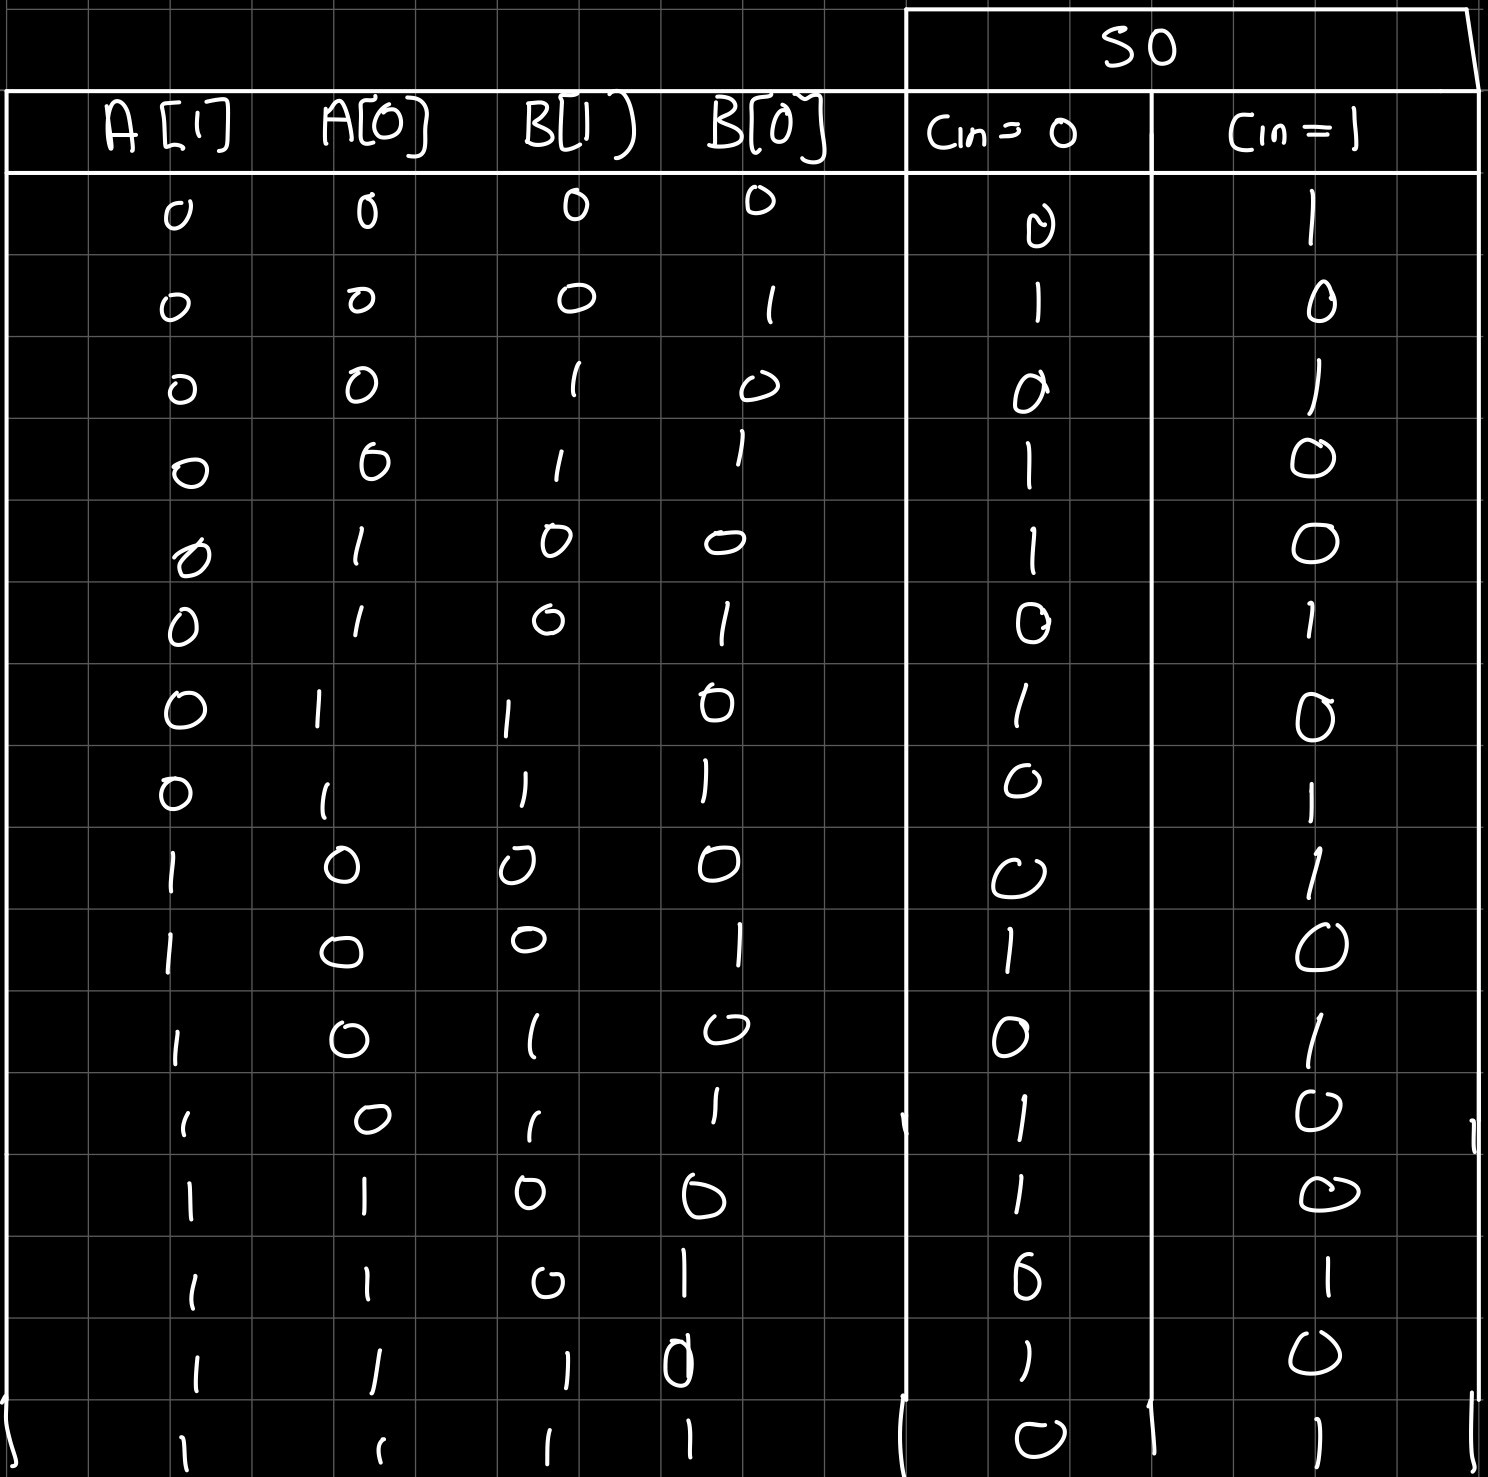 S0
A[1] A[0] B[1) B[0] Cin = 0 Cin = 1
0 0 0 0 0 1
0 0 0 1 1 0
0 0 1 0 0 1
0 0 1 1 1 0
0 1 0 0 1 0
0 1 0 1 0 1
0 1 1 0 1 0
0 1 1 1 0 1
1 0 0 0 0 1
1 0 0 1 1 0
1 0 1 0 0 1
1 0 1 1 1 0
1 1 0 0 1 0
1 1 0 1 0 1
1 1 1 0 1 0
1 1 1 1 0 1